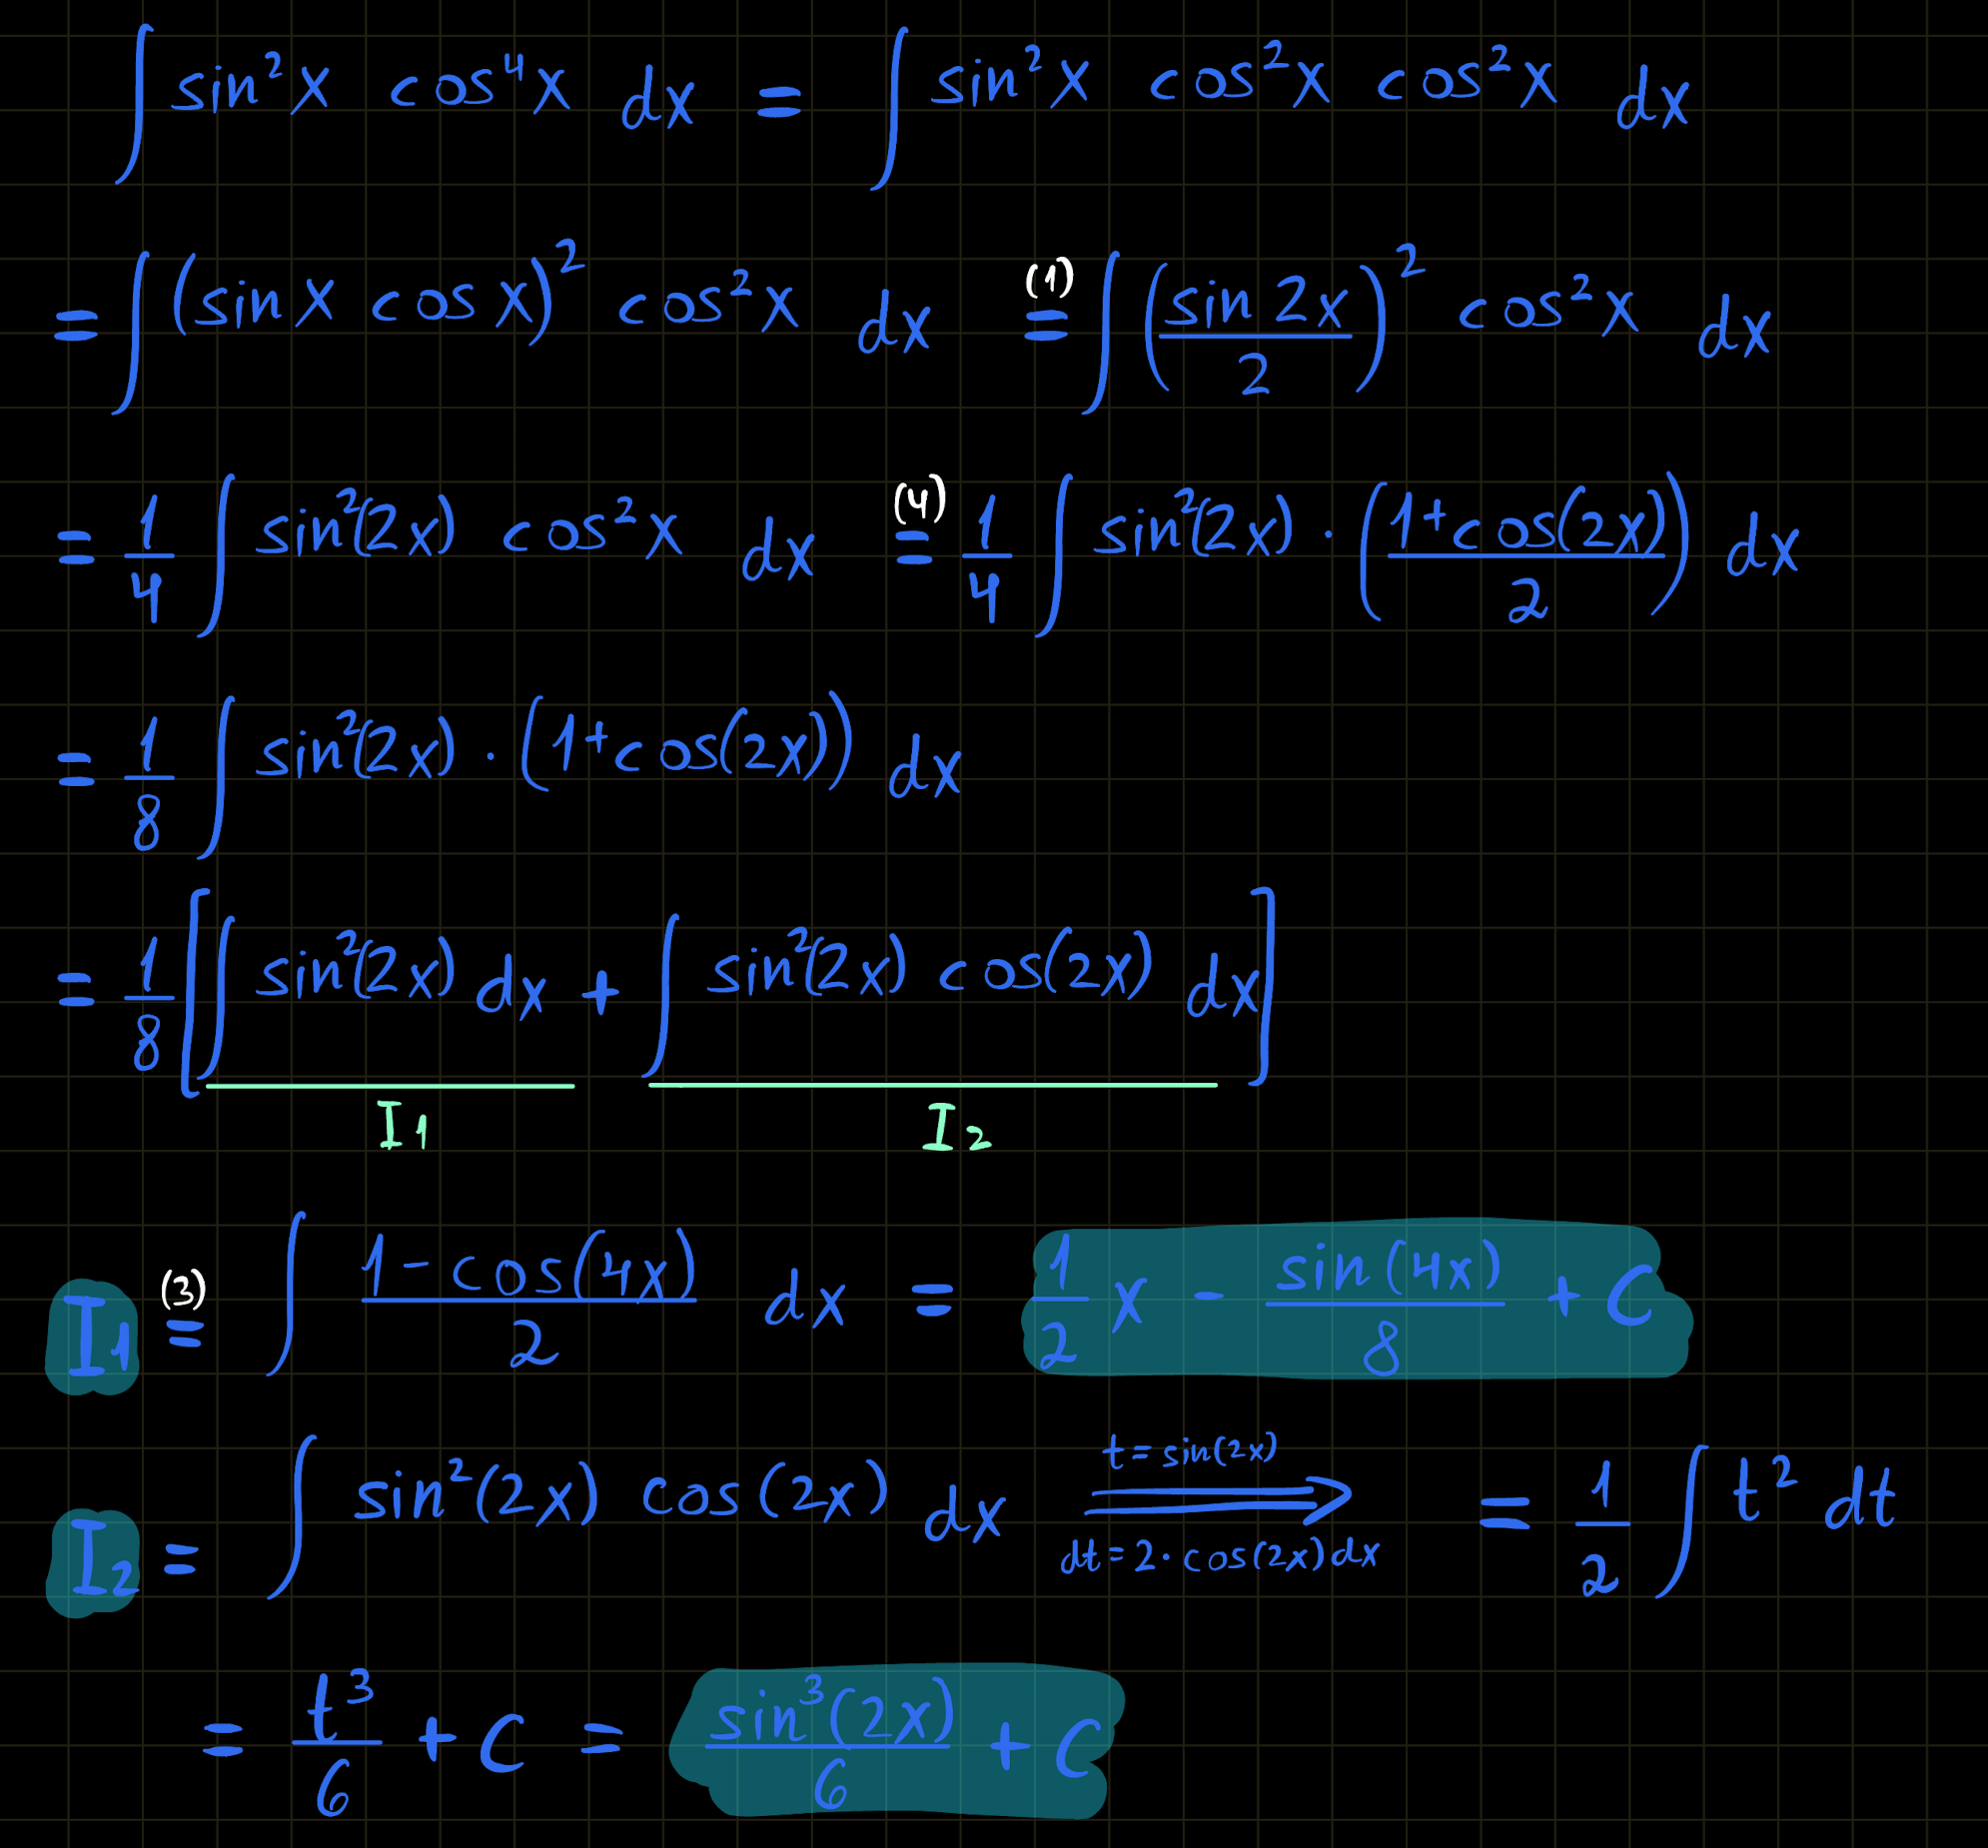 ∫ sin²x cos⁴x dx = ∫ sin²x cos²x cos²x dx
= ∫ (sin x cos x)² cos²x dx (1)= ∫ (sin 2x / 2)² cos²x dx
= 1/4 ∫ sin²(2x) cos²x dx (4)= 1/4 ∫ sin²(2x) · ((1+cos(2x))/2) dx
= 1/8 ∫ sin²(2x) · (1+cos(2x)) dx
= 1/8 [∫ sin²(2x) dx + ∫ sin²(2x) cos(2x) dx]
I₁ I₂
I₁ (3)= ∫ (1-cos(4x))/2 dx = 1/2 x - sin(4x)/8 + C
I₂ = ∫ sin²(2x) cos(2x) dx t=sin(2x) ⇒ dt=2·cos(2x)dx = 1/2 ∫ t² dt
= t³/6 + C = sin³(2x)/6 + C